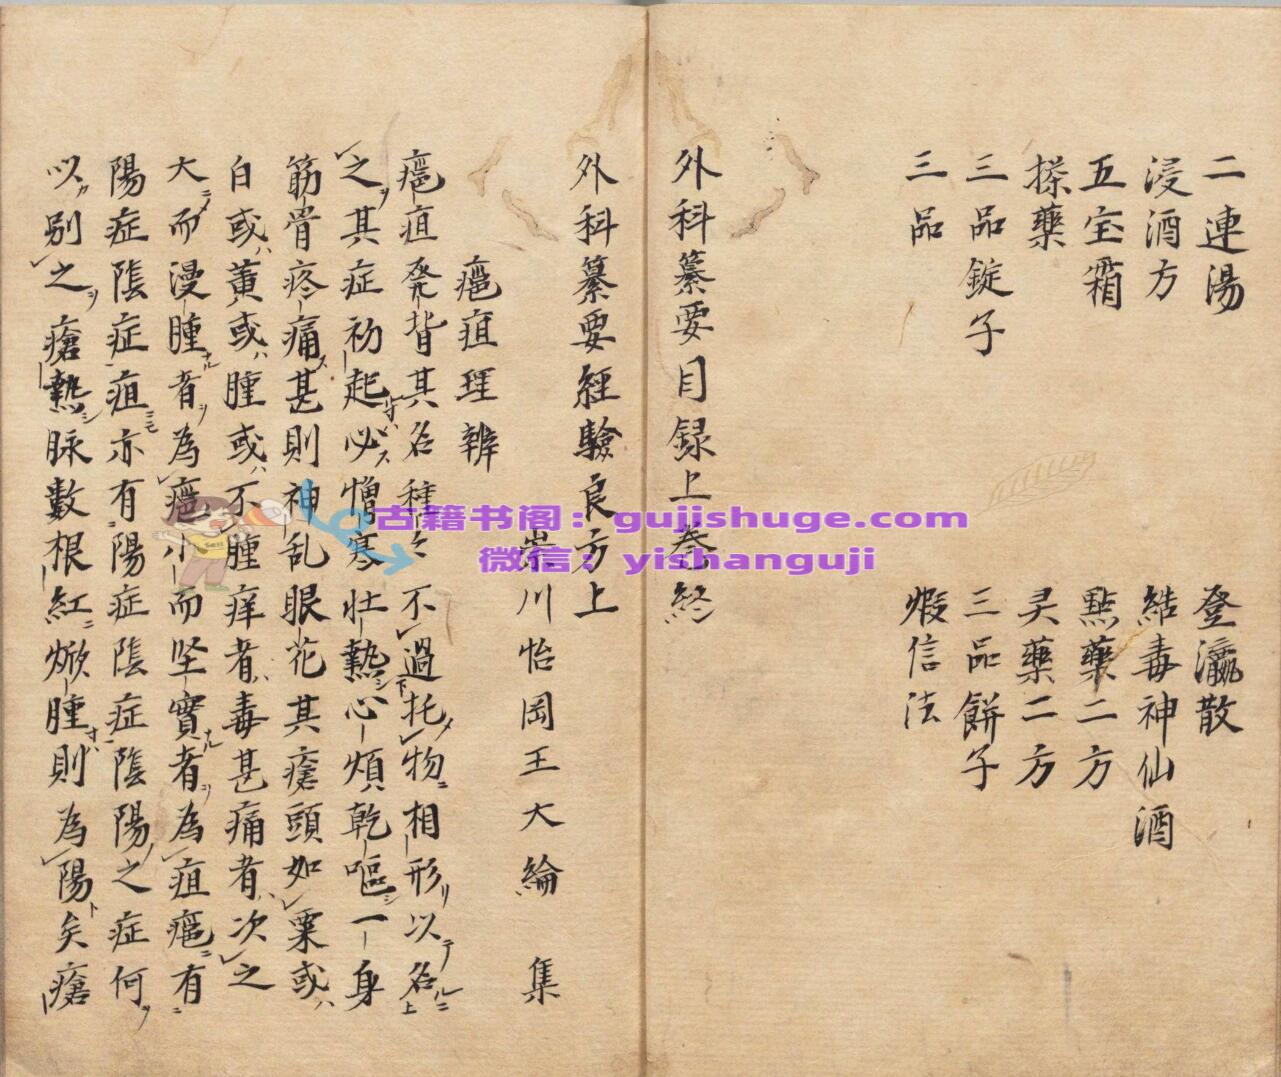 二連湯
登瀛散
浸酒方
結毒神仙酒
五宝霜
點藥二方
搽藥
灵藥二方
三品錠子
三品餅子
三品
煆信法
外科纂要目録上巻終
外科纂要經驗良方上
崇川怡岡王大綸 集
癰疽理辨
癰疽発背其名種〻不過托物相形以名
之其症初起必憎寒壮熱心煩乾嘔一身
筋骨疼痛甚則神乱眼花其瘡頭如粟或
白或黄或腫或不腫痒者毒甚痛者次之
大而漫腫者為癰小而坚實者為疽癰有
陽症陰症疽亦有陽症陰症陰陽之症何
以別之瘡熱脉數根紅焮腫則為陽矣瘡
古籍书阁：gujishuge.com
微信：yishanguji